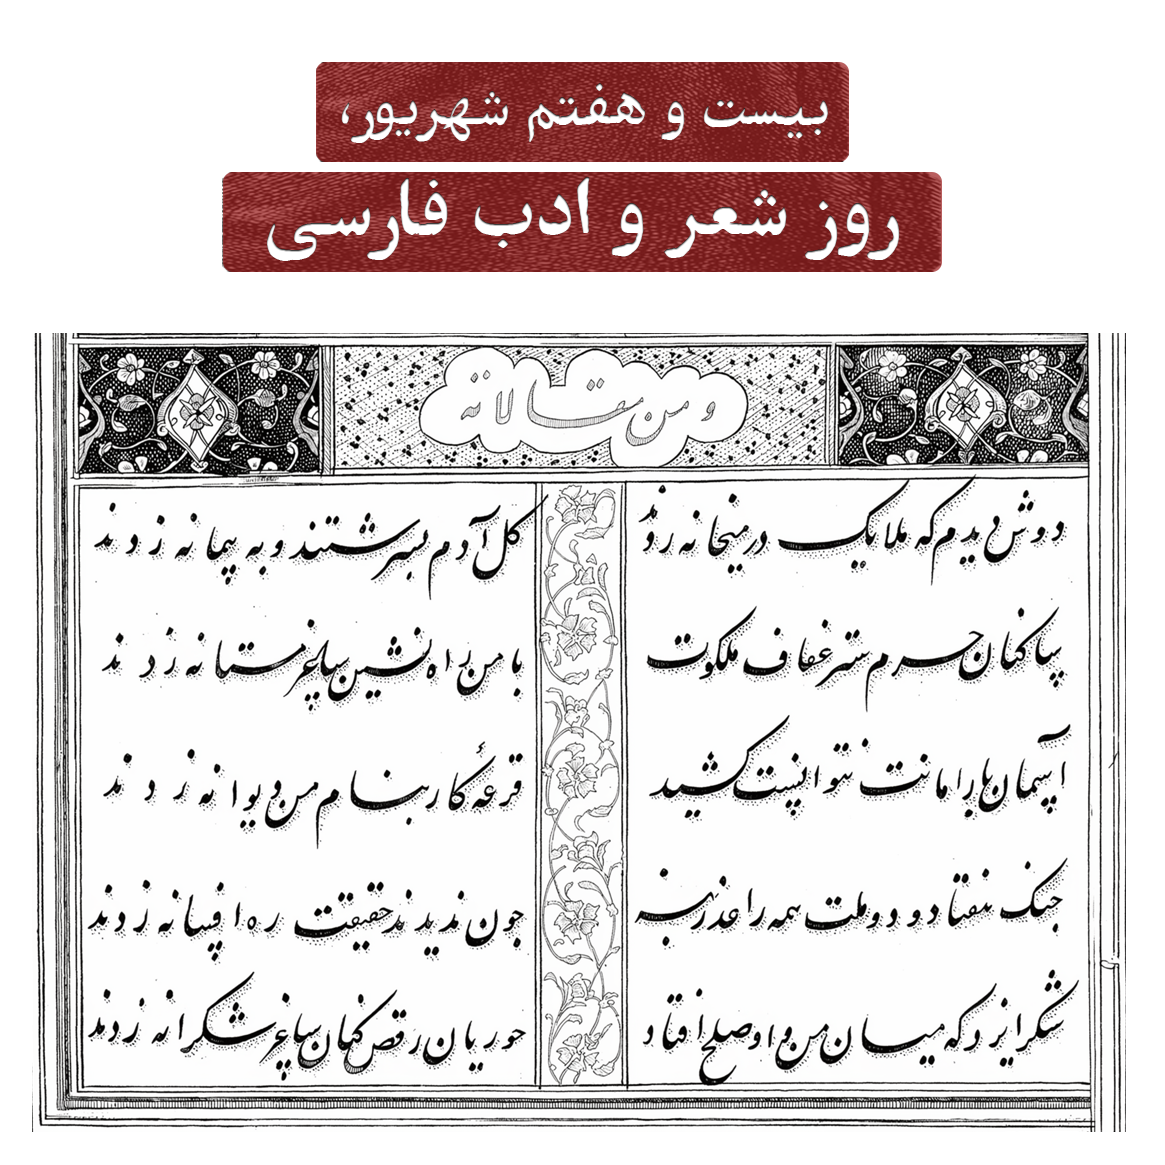 بیست و هفتم شهریور،
روز شعر و ادب فارسی
و من مقالاته
دوش دیدم که ملایک در میخانه زدند
کل آدم بسرشتند و به پیمانه زدند
ساکنان حرم ستر عفاف ملکوت
با من راه نشین ساغر مستانه زدند
آسمان بار امانت نتوانست کشید
قرعهٔ کار بنام من دیوانه زدند
جنک هفتاد و دو ملت همه را عذر بنه
جون ندیدند حقیقت ره افسانه زدند
شکر ایزد که میان من و او صلح افتاد
حوریان رقص کنان ساغر شکرانه زدند